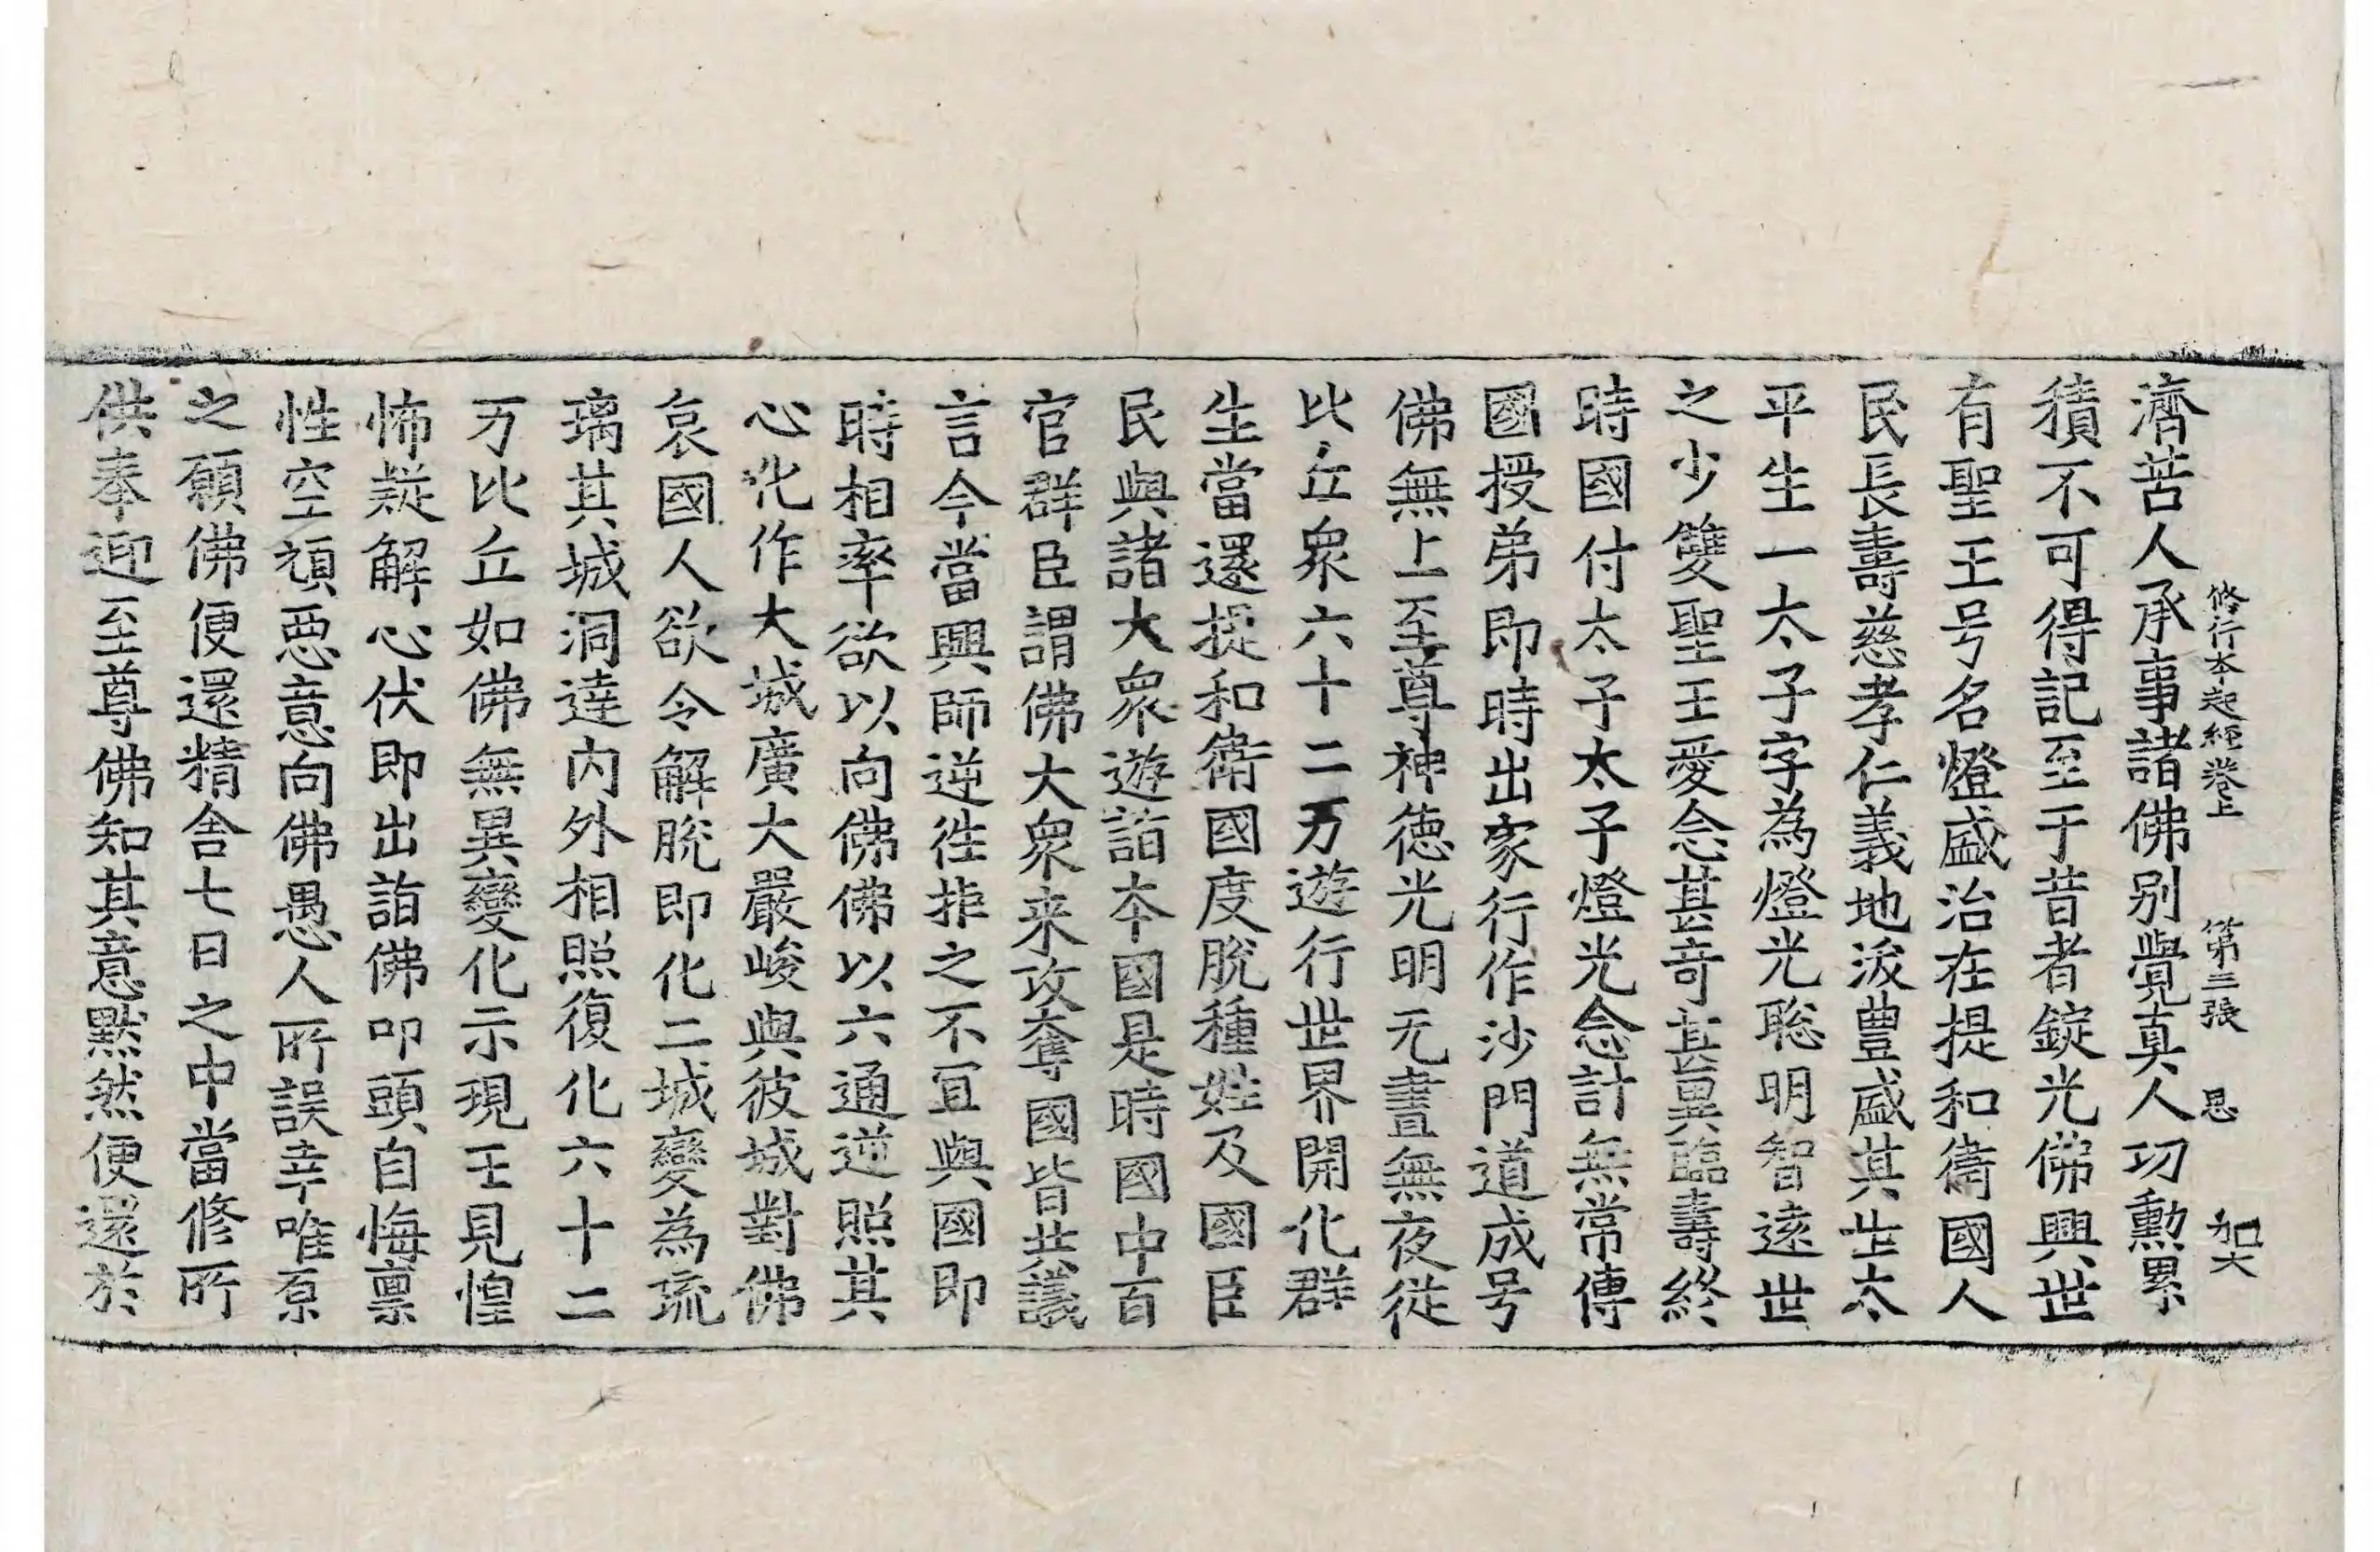 修行本起經卷上 第三張 恩 加大
濟苦人承事諸佛别覺真人功勲累
積不可得記至于昔者錠光佛興世
有聖王号名燈盛治在提和衛國人
民長壽慈孝仁義地沃豊盛其世太
平生一太子字為燈光聡明智遠世
之少雙聖王愛念甚奇甚異臨壽終
時國付太子太子燈光念計無常傳
國授弟即時出家行作沙門道成号
佛無上至尊神徳光明无晝無夜従
比丘衆六十二万遊行世界開化群
生當還提和衛國度脫種姓及國臣
民與諸大衆遊詣本國是時國中百
官群臣謂佛大衆来攻奪國皆共議
言今當興師逆往拒之不冝與國即
時相率欲以向佛佛以六通逆照其
心化作大城廣大嚴峻與彼城對佛
哀國人欲令解脫即化二城變為琉
璃其城洞達内外相照復化六十二
万比丘如佛無異變化示現王見惶
怖疑解心伏即出詣佛叩頭自悔禀
性空頑惡意向佛愚人所誤幸唯原
之願佛便還精舍七日之中當修所
供奉迎至尊佛知其意黙然便還於